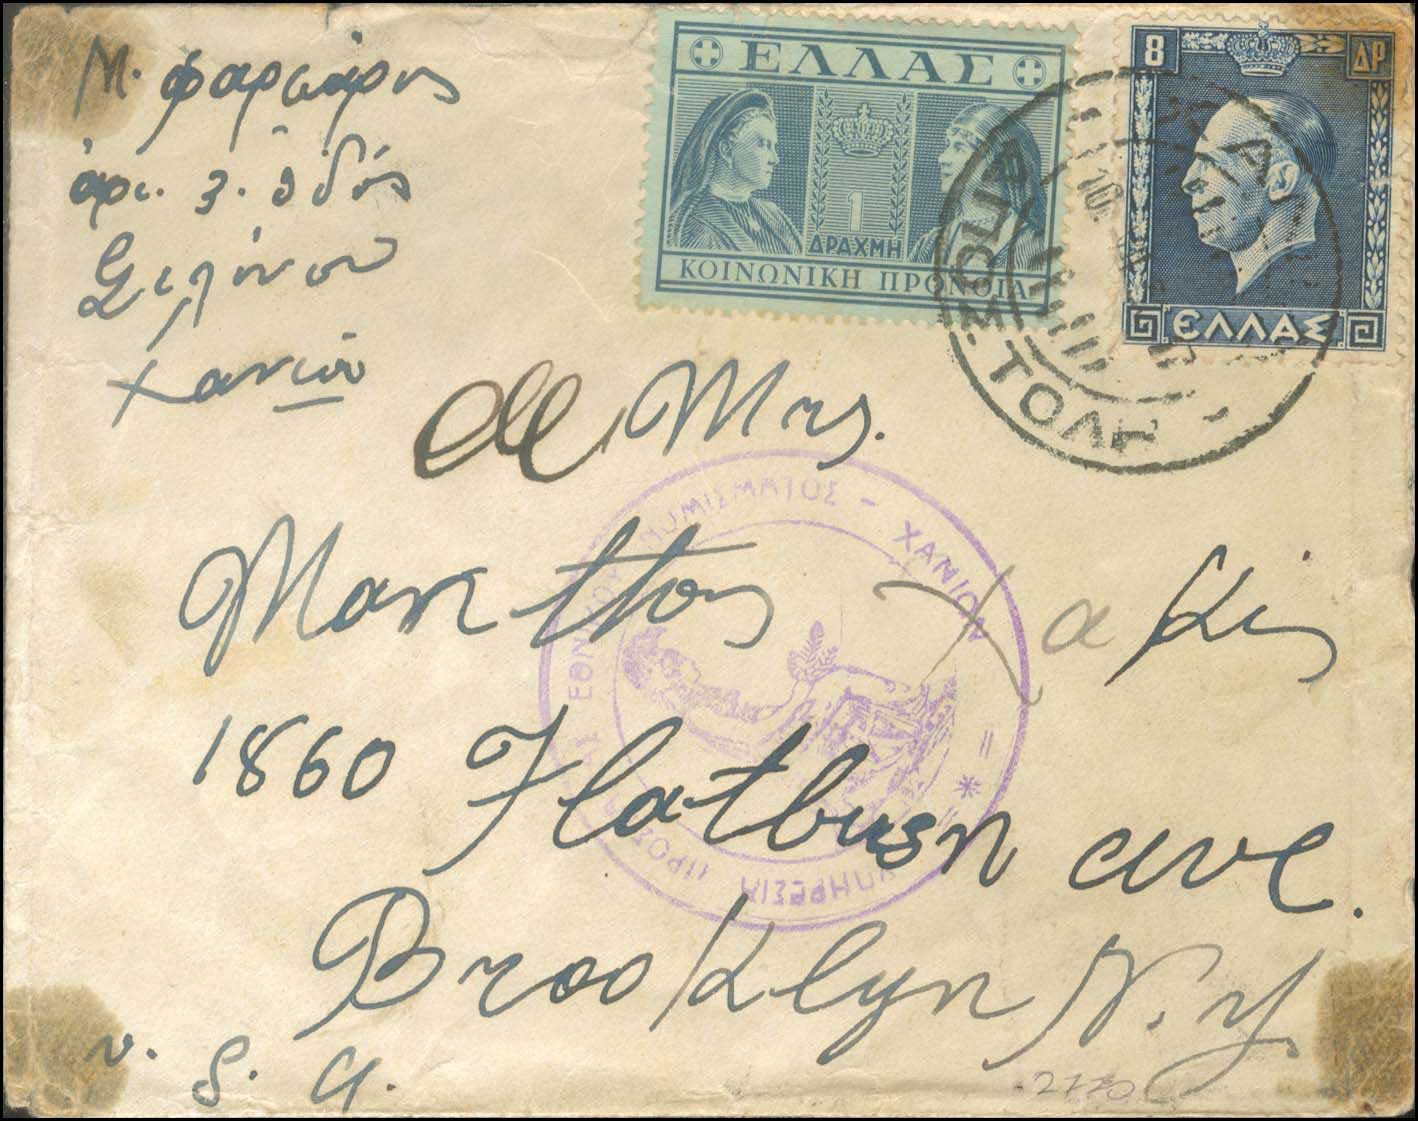 Μ. Φαρμάρης
αρι. 3. οδός
Σελήνου
Χανιών
ΕΛΛΑΣ
1
ΔΡΑΧΜΗ
ΚΟΙΝΩΝΙΚΗ ΠΡΟΝΟΙΑ
8 ΔΡ
ΕΛΛΑΣ
ΑΠΟΣΤΟΛΗ
Mrs.
Manttos
Xakis
1860 Flatbush ave.
Brooklyn N.Y.
U. S. A.
ΥΠΗΡΕΣΙΑ ΠΡΟΣΤΑΣΙΑΣ ΕΘΝΙΚΟΥ ΝΟΜΙΣΜΑΤΟΣ - ΧΑΝΙΩΝ
2770